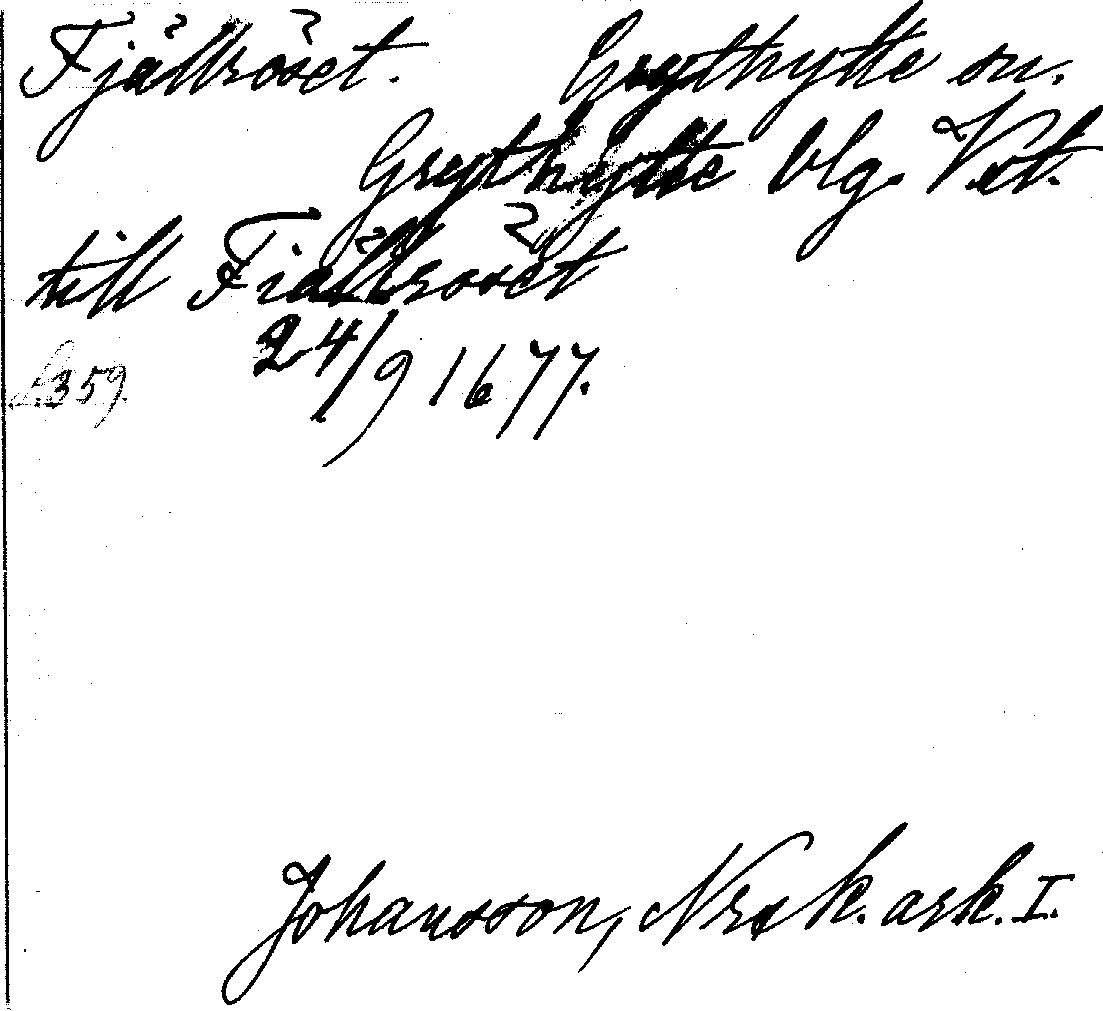 Fjällröset. Grythytte sn.
Grythytte blg. Vst.
till Fiällröset
24/9 1677.
s. 359.
Johansson, Nrsk. ark. I.